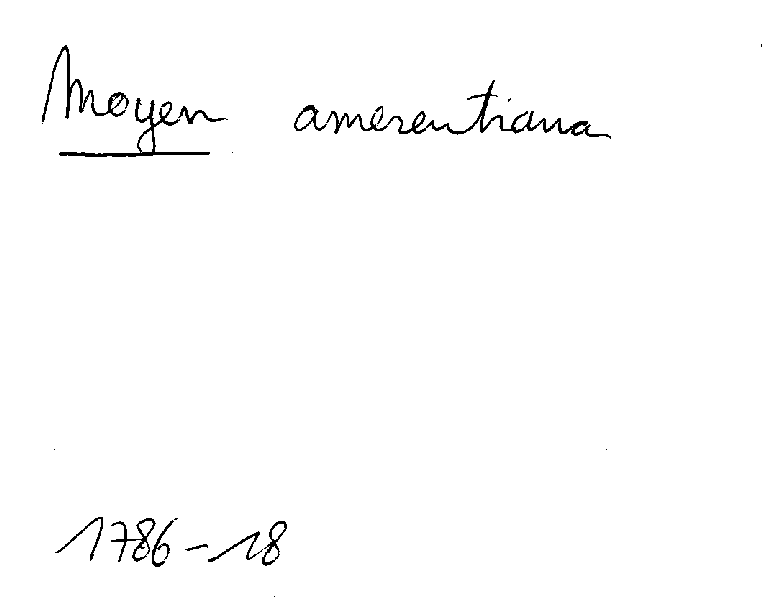 Moyen amerentiana
1786-18